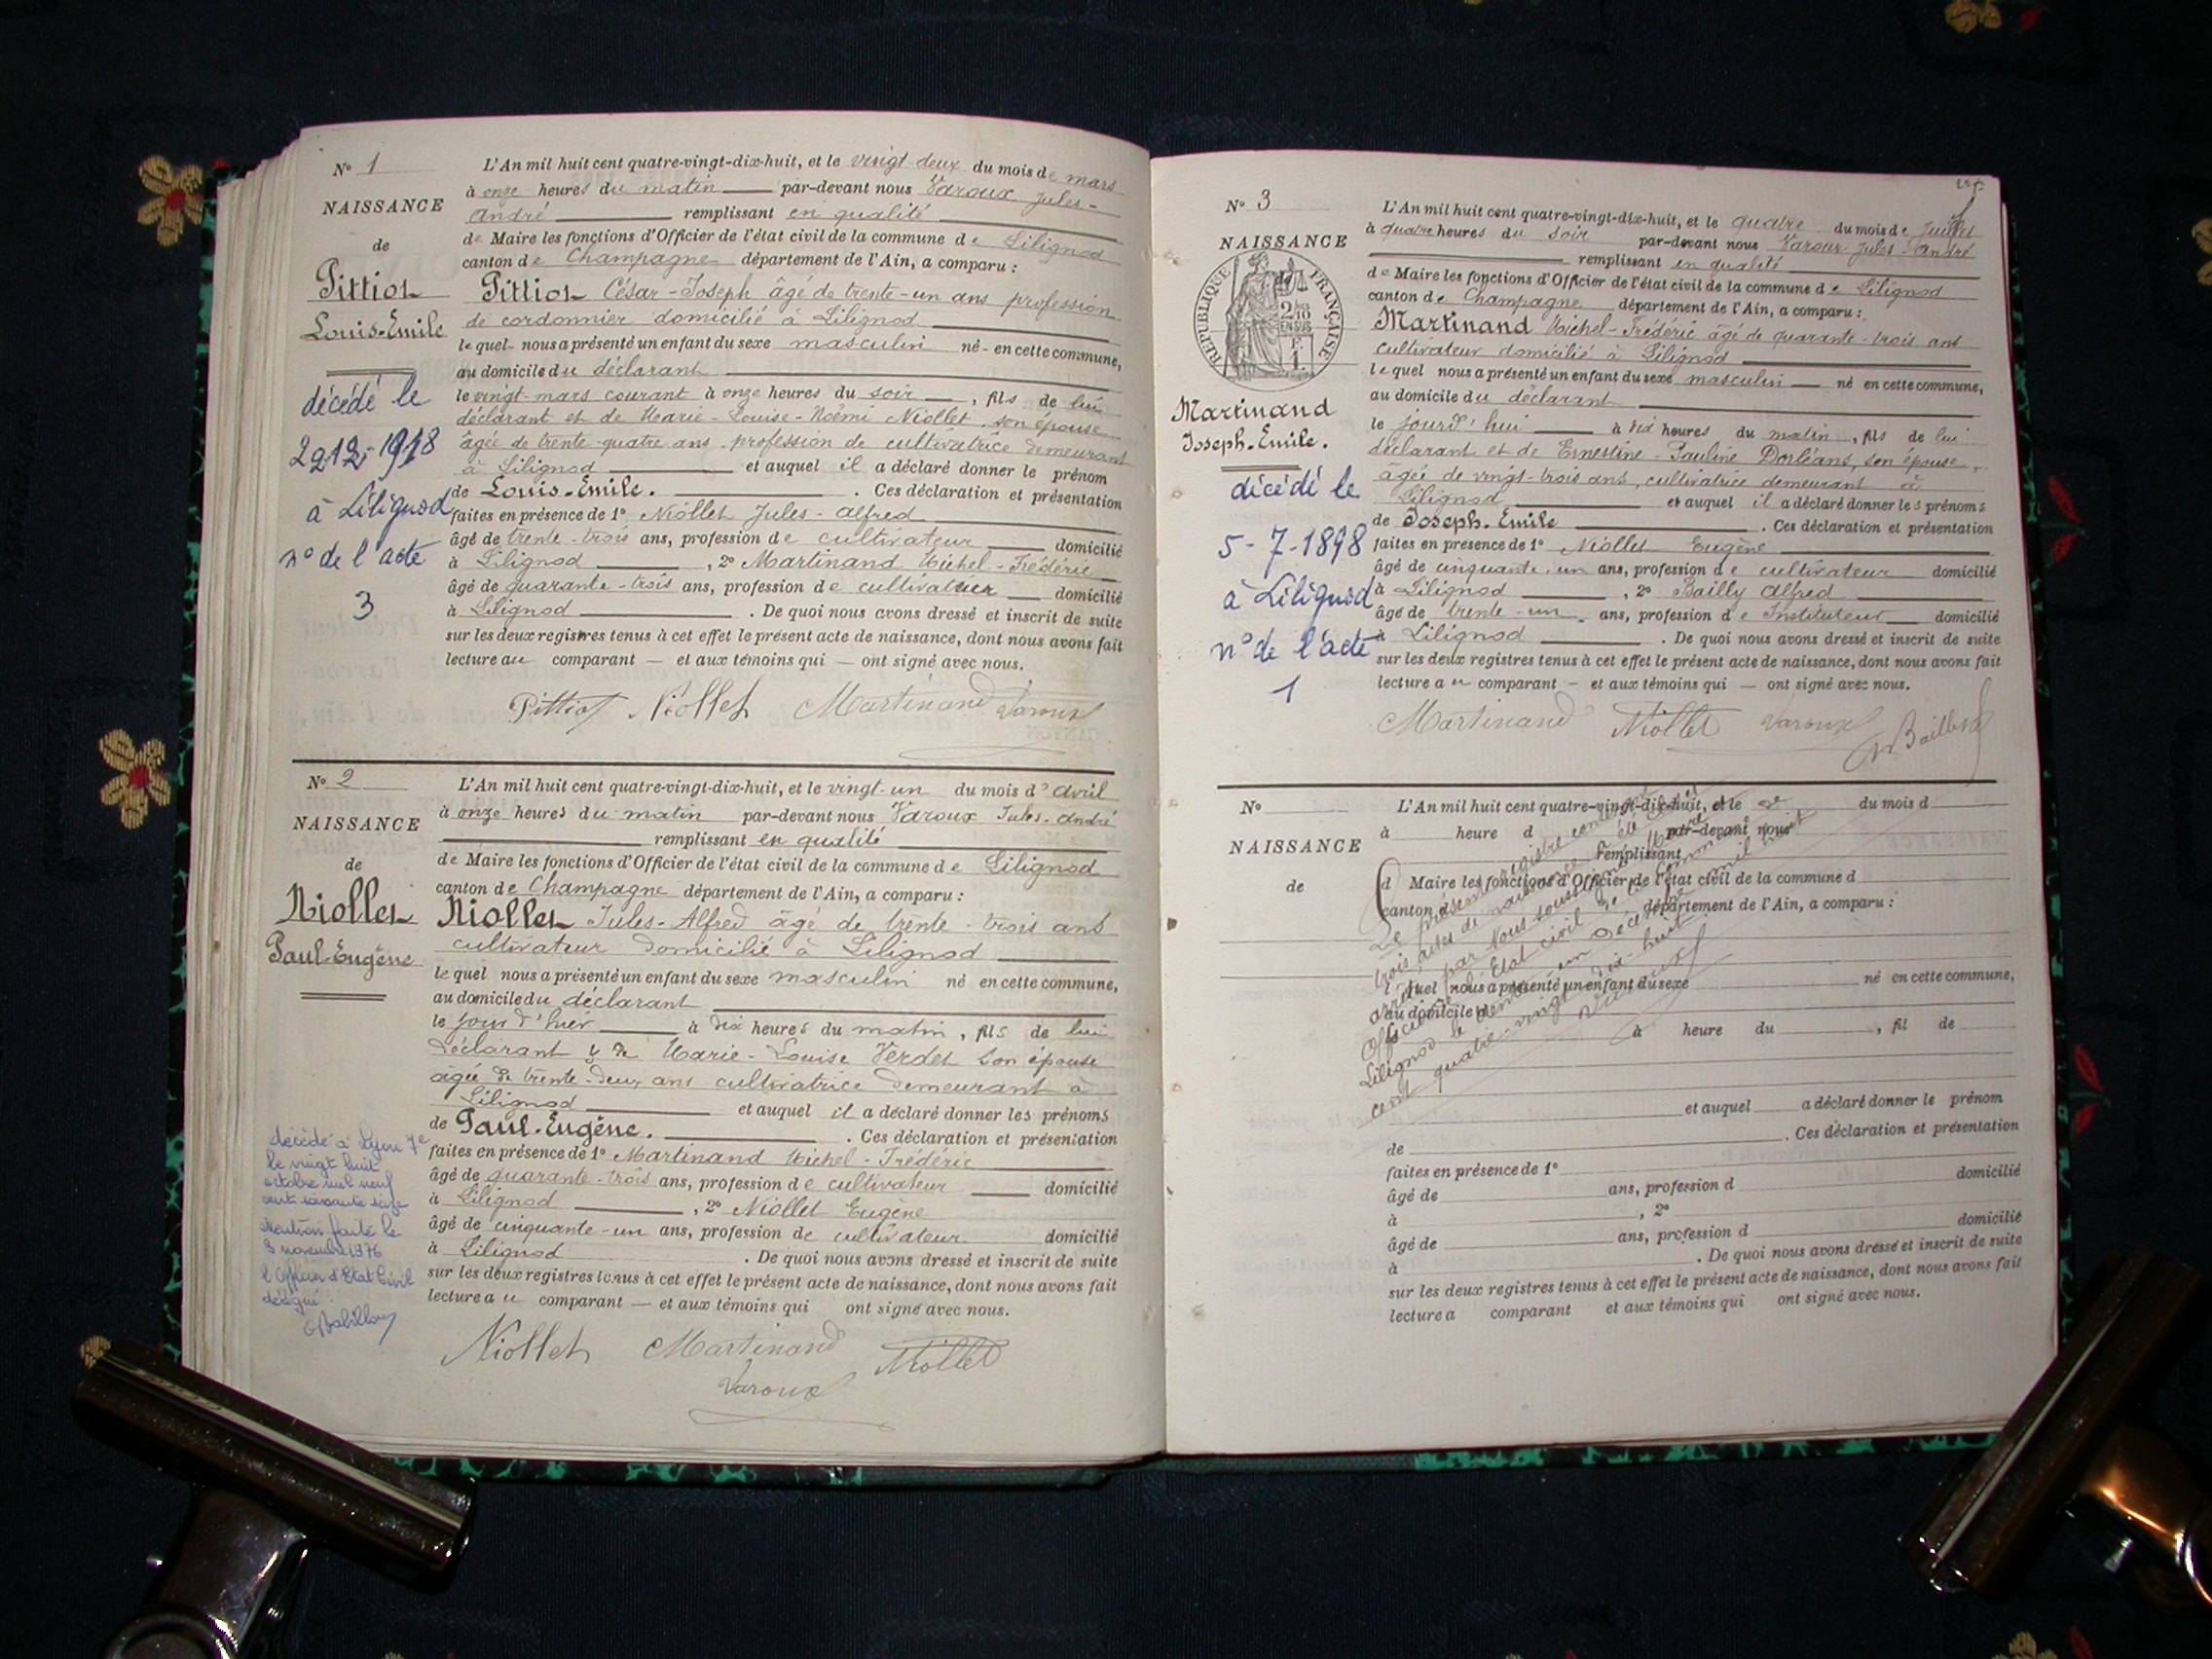 N° 1
NAISSANCE
de
Pittiot
Louis-Emile
décédé le
à Lilignod
n° de l'acte
3
L'An mil huit cent quatre-vingt-dix-huit, et le vingt-deux du mois de mars
à onze heures du matin par-devant nous Varoux Jules-
André remplissant en qualité
de Maire les fonctions d'Officier de l'état civil de la commune de Lilignod
canton de Champagne département de l'Ain, a comparu :
Pittiot César-Joseph âgé de trente-un ans profession
de cordonnier domicilié à Lilignod
lequel nous a présenté un enfant du sexe masculin né en cette commune,
au domicile du déclarant
le vingt mars courant à onze heures du soir, fils de lui
déclarant et de Marie-Louise-Noémi Niollet, son épouse
âgée de trente-quatre ans profession de cultivatrice demeurant
à Lilignod et auquel il a déclaré donner le prénom
de Louis-Emile. Ces déclaration et présentation
faites en présence de 1° Niollet Jules-Alfred
âgé de trente-trois ans, profession de cultivateur domicilié
à Lilignod, 2° Martinand Michel-Frédéric
âgé de quarante-trois ans, profession de cultivateur domicilié
à Lilignod. De quoi nous avons dressé et inscrit de suite
sur les deux registres tenus à cet effet le présent acte de naissance, dont nous avons fait
lecture au comparant — et aux témoins qui — ont signé avec nous.
Pittiot Niollet Martinand Varoux
N° 2
NAISSANCE
de
Niollet
Paul-Eugène
décédé à Lyon 7e
le vingt huit
octobre mil neuf
cent soixante seize
Mention faite le
3 novembre 1976
l'Officier d'Etat Civil
délégué
L'An mil huit cent quatre-vingt-dix-huit, et le vingt-un du mois d'avril
à onze heures du matin par-devant nous Varoux Jules-André
remplissant en qualité
de Maire les fonctions d'Officier de l'état civil de la commune de Lilignod
canton de Champagne département de l'Ain, a comparu :
Niollet Jules-Alfred âgé de trente-trois ans
cultivateur domicilié à Lilignod
lequel nous a présenté un enfant du sexe masculin né en cette commune,
au domicile du déclarant
le jour d'hier à dix heures du matin, fils de lui
déclarant & de Marie-Louise Verdet son épouse
âgée de trente-deux ans cultivatrice demeurant à
Lilignod et auquel il a déclaré donner les prénoms
de Paul-Eugène. Ces déclaration et présentation
faites en présence de 1° Martinand Michel-Frédéric
âgé de quarante-trois ans, profession de cultivateur domicilié
à Lilignod, 2° Niollet Eugène
âgé de cinquante-un ans, profession de cultivateur domicilié
à Lilignod. De quoi nous avons dressé et inscrit de suite
sur les deux registres tenus à cet effet le présent acte de naissance, dont nous avons fait
lecture au comparant — et aux témoins qui ont signé avec nous.
Niollet Martinand Niollet
Varoux
N° 3
NAISSANCE
RÉPUBLIQUE FRANÇAISE
2/10
EN SUS
Martinand
Joseph-Emile.
décédé le
5-7-1898
à Lilignod
n° de l'acte
1
L'An mil huit cent quatre-vingt-dix-huit, et le quatre du mois de Juillet
à quatre heures du soir par-devant nous Varoux Jules-André
remplissant en qualité
de Maire les fonctions d'Officier de l'état civil de la commune de Lilignod
canton de Champagne département de l'Ain, a comparu :
Martinand Michel-Frédéric âgé de quarante-trois ans
cultivateur domicilié à Lilignod
lequel nous a présenté un enfant du sexe masculin né en cette commune,
au domicile du déclarant
le jourd'hui à dix heures du matin, fils de lui
déclarant et de Ernestine-Pauline Dorléans, son épouse,
âgée de vingt-trois ans, cultivatrice demeurant à
Lilignod et auquel il a déclaré donner les prénoms
de Joseph-Emile. Ces déclaration et présentation
faites en présence de 1° Niollet Eugène
âgé de cinquante-un ans, profession de cultivateur domicilié
à Lilignod, 2° Bailly Alfred
âgé de trente-un ans, profession de Instituteur domicilié
à Lilignod. De quoi nous avons dressé et inscrit de suite
sur les deux registres tenus à cet effet le présent acte de naissance, dont nous avons fait
lecture au comparant — et aux témoins qui — ont signé avec nous.
Martinand Niollet Varoux
N°
NAISSANCE
de
L'An mil huit cent quatre-vingt-dix-huit, et le du mois d
à heure d par-devant nous
remplissant
d Maire les fonctions d'Officier de l'état civil de la commune d
canton d département de l'Ain, a comparu :
l quel nous a présenté un enfant du sexe né en cette commune,
au domicile d
le à heure du , fil de
et auquel a déclaré donner le prénom
de . Ces déclaration et présentation
faites en présence de 1°
âgé de ans, profession d domicilié
à , 2°
âgé de ans, profession d domicilié
à . De quoi nous avons dressé et inscrit de suite
sur les deux registres tenus à cet effet le présent acte de naissance, dont nous avons fait
lecture a comparant et aux témoins qui ont signé avec nous.
Le présent registre contenant
trois actes de naissance a été clos et
arrêté par Nous soussigné Maire
Officier de l'Etat civil de la Commune de
Lilignod le trente un Décembre mil huit
cent quatre-vingt dix-huit
Varoux